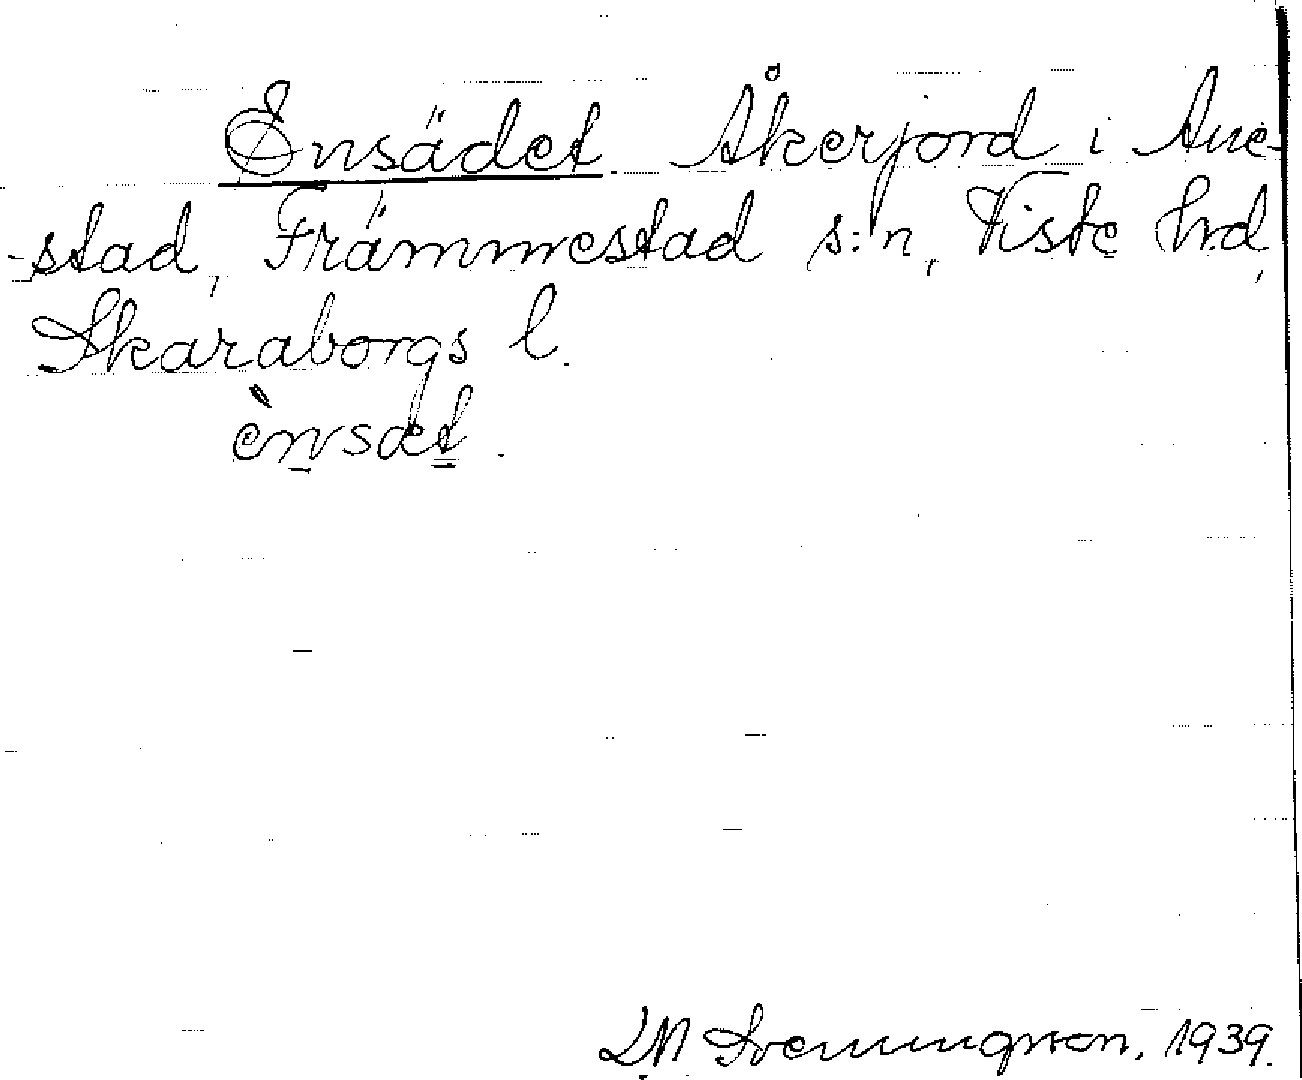 Ensädet Åkerjord i Ane-
-stad, Främmestad s:n, Viste hrd,
Skaraborgs l.
ènsæt.
LM Svenungsson, 1939.